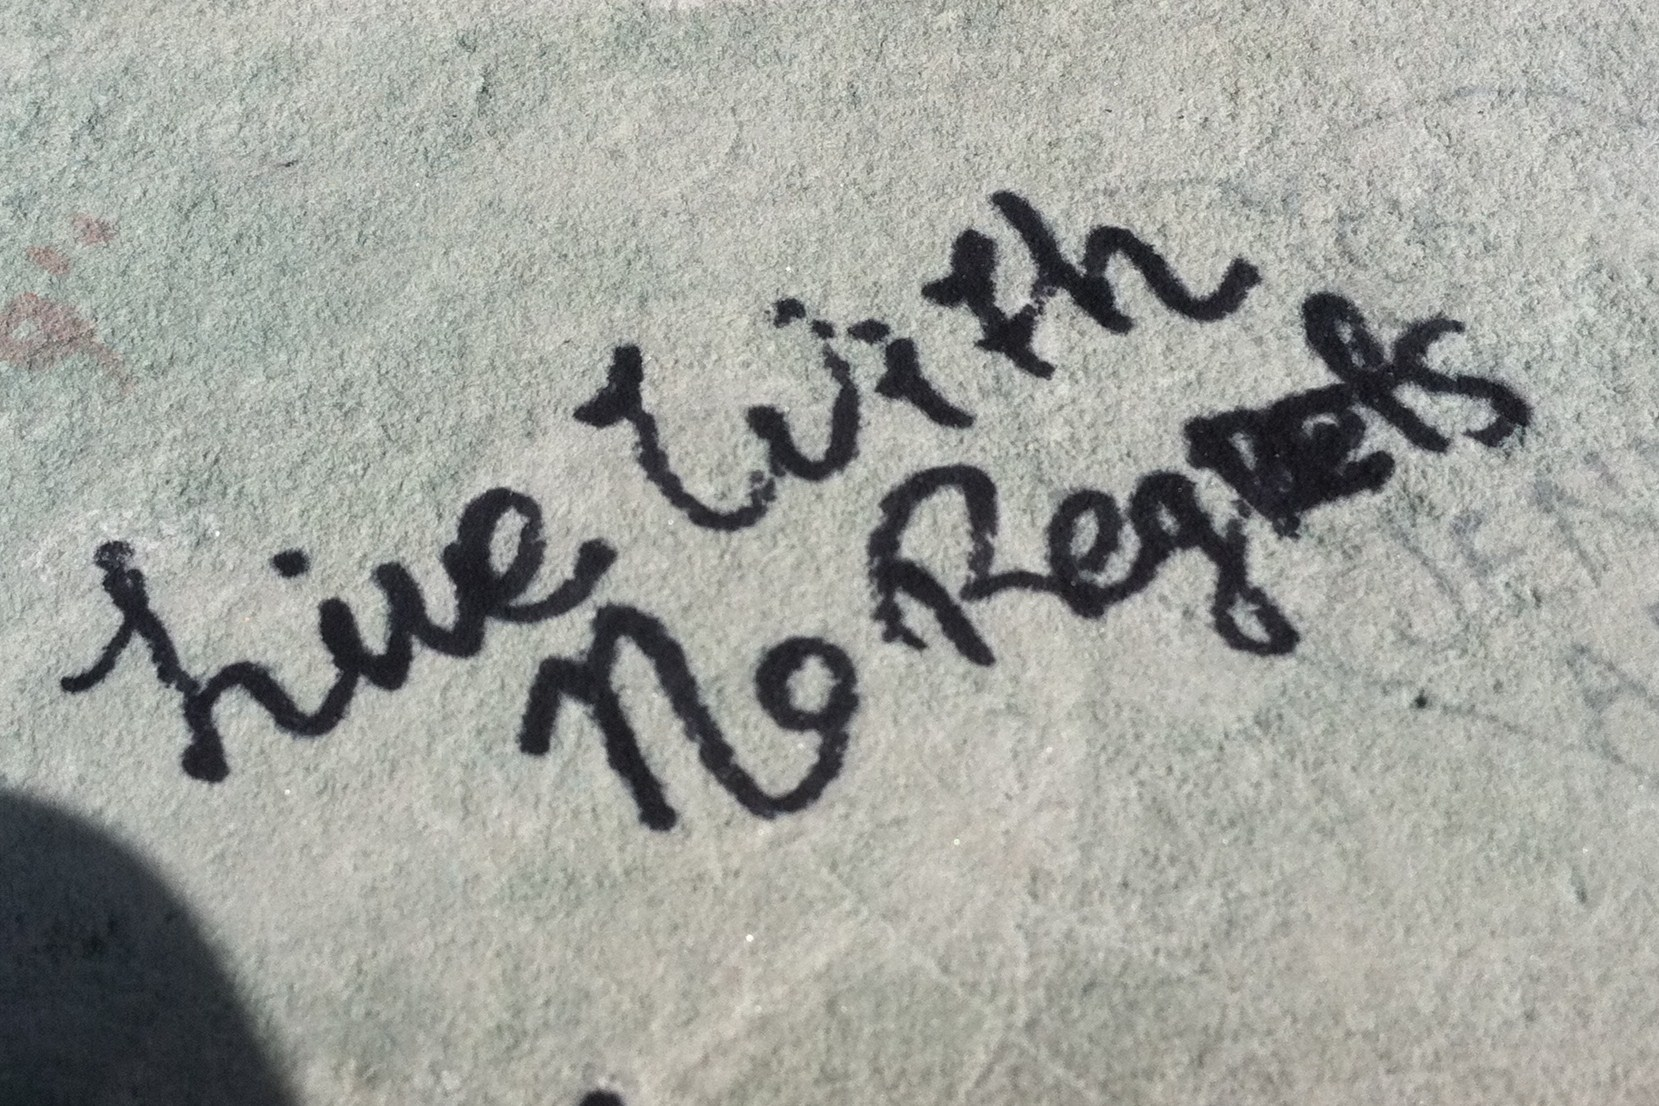 Live With
No Regrets